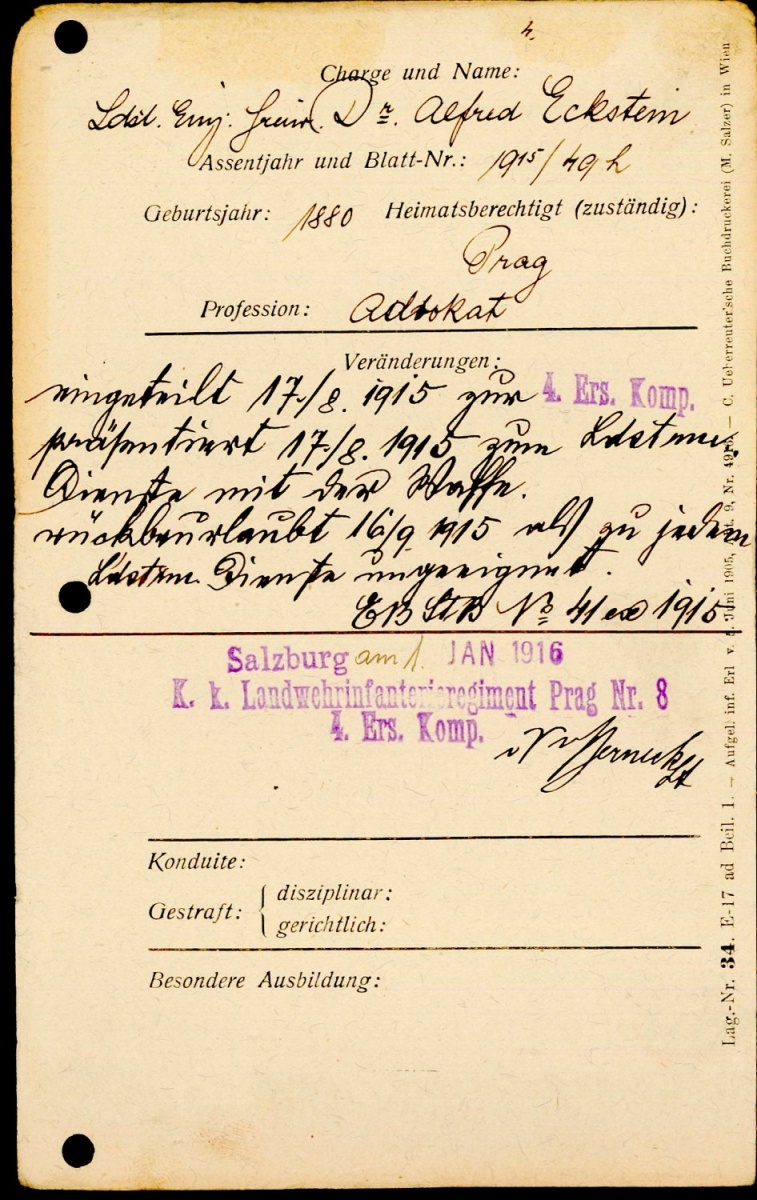 4.
Charge und Name:
Ldst. Einj. freiw. Dr. Alfred Eckstein
Assentjahr und Blatt-Nr.: 1915/49 h
Geburtsjahr: 1880 Heimatsberechtigt (zuständig):
Prag
Profession: Advokat
Veränderungen:
eingeteilt 17./8. 1915 zur 4. Ers. Komp.
präsentiert 17./8. 1915 zum Ldstrm.
Dienste mit der Waffe.
rückbeurlaubt 16/9 1915 als zu jedem
Ldstrm. Dienste ungeeignet.
EB StB No 41 ex 1915
Salzburg am 1. JAN 1916
K. k. Landwehrinfanterieregiment Prag Nr. 8
4. Ers. Komp.
Konduite:
Gestraft: { disziplinar:
gerichtlich:
Besondere Ausbildung:
Lag.-Nr. 34. E-17 ad Beil. 1. — Aufgel. inf. Erl v. Juni 1905, Nr. — C. Ueberreuter'sche Buchdruckerei (M. Salzer) in Wien